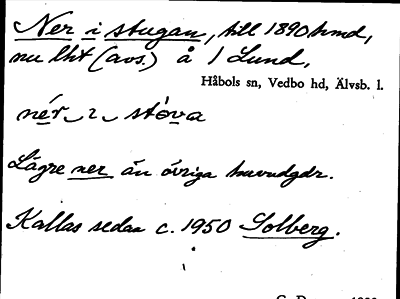 Ner i stugan, till 1890 hmd,
nu lht (avs.) å 1 Lund,
Håbols sn, Vedbo hd, Älvsb. l.
nér ɩ stòva
Lägre ner än övriga huvudgdr.
Kallas sedan c. 1950 Solberg.